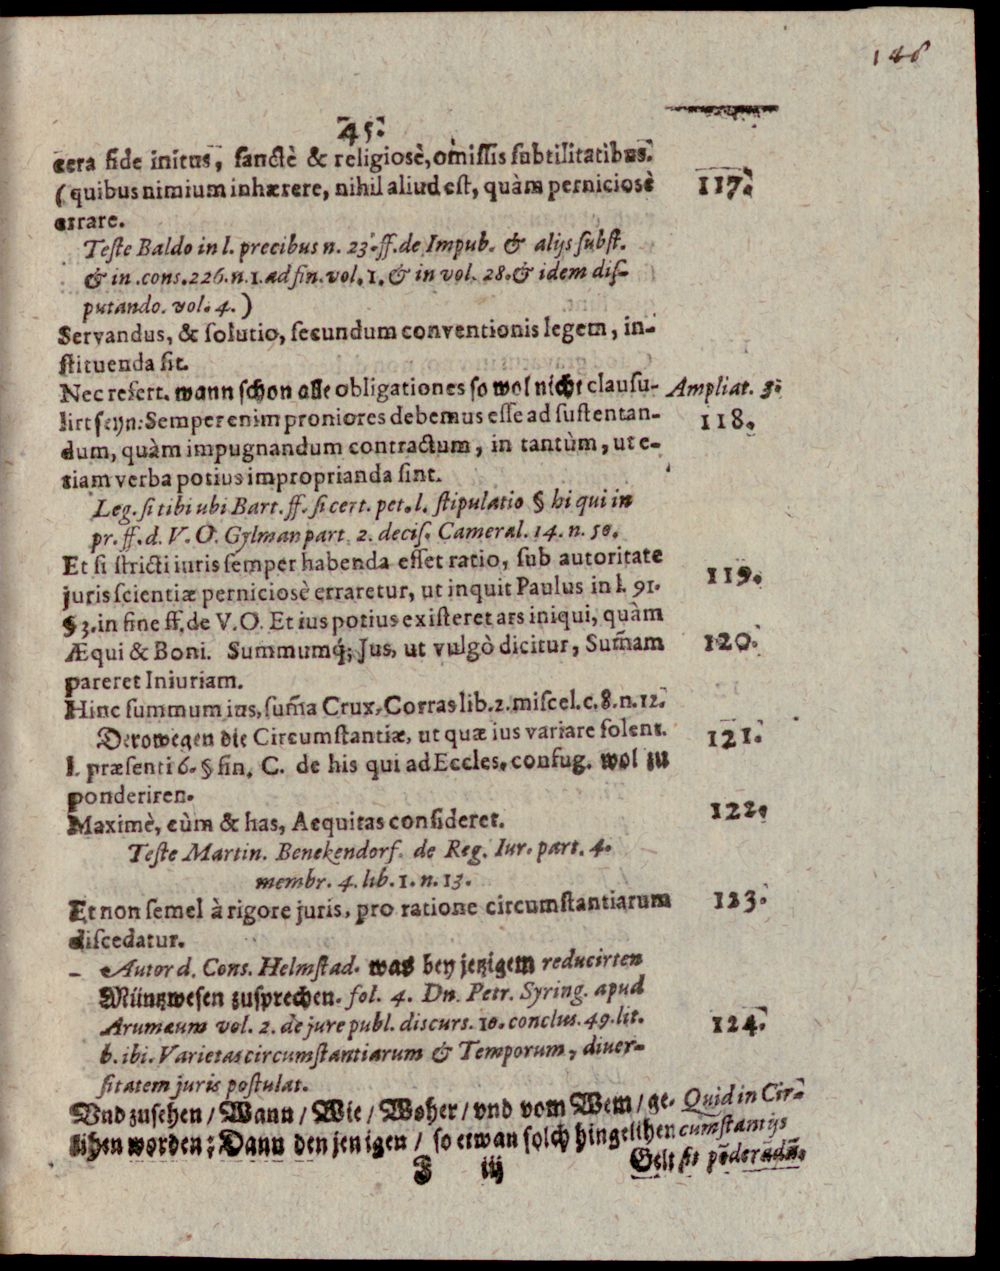 148
45.
cera fide initus, sanctè & religiosè, omissis subtilitatibus.
(quibus nimium inhærere, nihil aliud est, quàm perniciosè 117.
errare.
Teste Baldo in l. precibus n. 23. ff. de Impub. & alijs subst.
& in . cons. 226. n. 1. ad fin. vol. 1. & in vol. 28. & idem dis-
putando. vol. 4. )
Servandus, & solutio, secundum conventionis legem, in-
stituenda sit.
Nec refert. wann schon alle obligationes so wol nicht clausu- Ampliat. 3.
lirt seyn: Semper enim proniores debemus esse ad sustentan- 118.
dum, quàm impugnandum contractum, in tantùm, ut e-
tiam verba potius improprianda sint.
Leg. si tibi ubi Bart. ff. si cert. pet. l. stipulatio § hi qui in
pr. ff. d. V. O. Gylman part. 2. decis. Cameral. 14. n. 50.
Et si stricti iuris semper habenda esset ratio, sub autoritate
juris scientiæ perniciosè erraretur, ut inquit Paulus in l. 91. 119.
§ 3. in fine ff. de V. O. Et ius potius existeret ars iniqui, quàm
Æqui & Boni. Summumq́; Jus, ut vulgò dicitur, Sum̃am 120.
pareret Iniuriam.
Hinc summum ius, sum̃a Crux, Corras lib. 2. miscel. c. 8. n. 12.
Derowegen die Circumstantiæ, ut quæ ius variare solent. 121.
l. præsenti 6. § fin. C. de his qui ad Eccles. confug. wol zu
ponderiren.
Maximè, cùm & has, Aequitas consideret. 122.
Teste Martin. Benekendorf. de Reg. Iur. part. 4.
membr. 4. lib. 1. n. 13.
Et non semel à rigore juris, pro ratione circumstantiarum 123.
discedatur.
Autor d. Cons. Helmstad. was bey jetzigem reducirten
Müntzwesen zusprechen. fol. 4. Dn. Petr. Syring. apud
Arumæum vol. 2. de jure publ. discurs. 10. conclus. 49. lit. 124.
b. ibi. Varietas circumstantiarum & Temporum, diver-
sitatem juris postulat.
Vnd zusehen / Wann / Wie / Woher / vnd vom Wem / ge- Quid in Cir-
lihen worden; Dann den jenigen / so etwan solch hingelihen cumstantijs
Gelt sit põderãdũ.
J iij